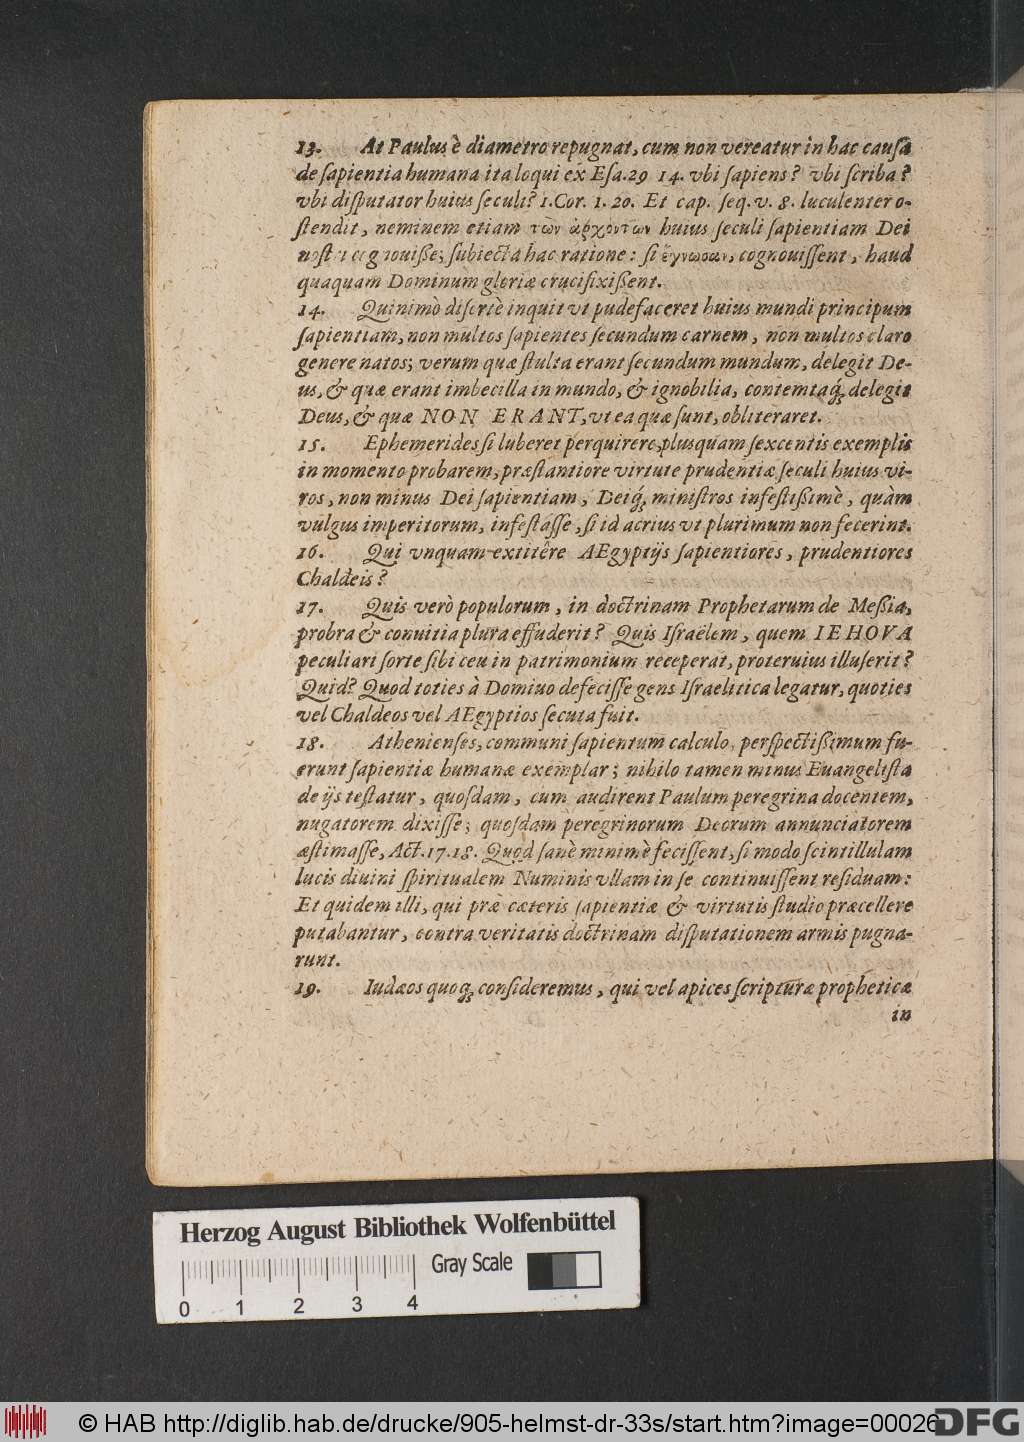 13. At Paulus è diametro repugnat, cum non vereatur in hac causâ
de ſapientia humana ita loqui ex Eſa. 29 14. vbi ſapiens? vbi ſcriba?
vbi diſputator huius ſeculi? 1. Cor. 1. 20. Et cap. ſeq. v. 8. luculenter o-
ſtendit, neminem etiam τῶν ἀρχόντων huius ſeculi ſapientiam Dei
cognouiße; ſubiecta hac ratione: ſi ἔγνωσαν, cognouiſſent, haud
quaquam Dominum gloriæ crucifixißent.
14. Quinimò diſertè inquit vt pudefaceret huius mundi principum
ſapientiam, non multos ſapientes ſecundum carnem, non multos claro
genere natos; verum quæ ſtulta erant ſecundum mundum, delegit De-
us, & quæ erant imbecilla in mundo, & ignobilia, contemtaq́; delegit
Deus, & quæ NON ERANT, vt ea quæ ſunt, obliteraret.
15. Ephemerides ſi luberet perquirere, plusquam ſexcentis exemplis
in momento probarem, præſtantiore virtute prudentiæ ſeculi huius vi-
ros, non minus Dei ſapientiam, Deiq́; miniſtros infeſtißimè, quàm
vulgus imperitorum, infeſtaſſe, ſi id acrius vt plurimum non fecerint.
16. Qui vnquam extitêre AEgyptijs ſapientiores, prudentiores
Chaldeis?
17. Quis verò populorum, in doctrinam Prophetarum de Meßia,
probra & conuitia plura effuderit? Quis Iſraëlem, quem IEHOVA
peculiari ſorte ſibi ceu in patrimonium receperat, proteruius illuſerit?
Quid? Quod toties à Domiuo defeciſſe gens Iſraelitica legatur, quoties
vel Chaldeos vel AEgyptios ſecuta fuit.
18. Athenienſes, communi ſapientum calculo, perſpectißimum fu-
erunt ſapientiæ humanæ exemplar; nihilo tamen minus Euangeliſta
de ijs teſtatur, quoſdam, cum audirent Paulum peregrina docentem,
nugatorem dixiſſe; quoſdam peregrinorum Deorum annunciatorem
æſtimaſſe, Act. 17. 18. Quod ſanè minimè feciſſent, ſi modo ſcintillulam
lucis diuini ſpiritualem Numinis vllam in ſe continuiſſent reſiduam:
Et quidem illi, qui præ cæteris ſapientiæ & virtutis ſtudio præcellere
putabantur, contra veritatis doctrinam diſputationem armis pugna-
runt.
19. Iudæos quoq; conſideremus, qui vel apices ſcripturæ propheticæ
in
Herzog August Bibliothek Wolfenbüttel
Gray Scale
0 1 2 3 4
© HAB http://diglib.hab.de/drucke/905-helmst-dr-33s/start.htm?image=00026
DFG